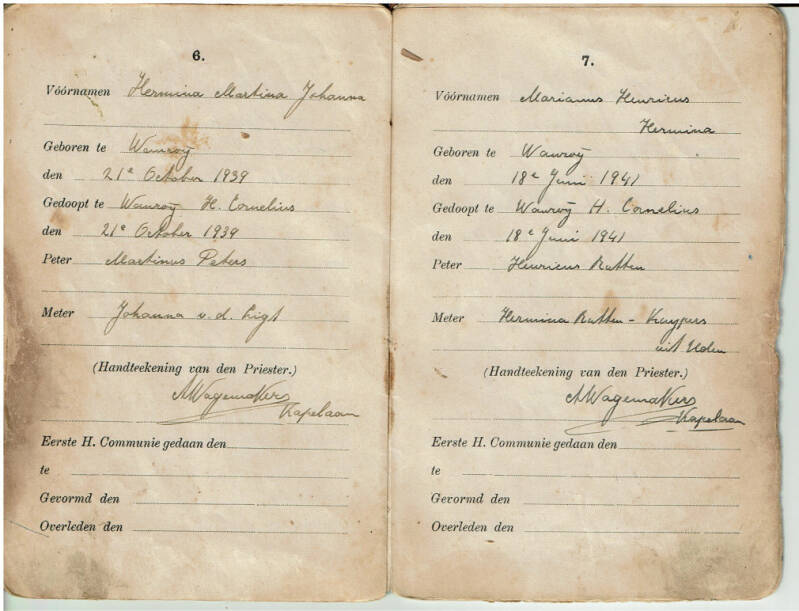 6.
Vóórnamen Hermina Martina Johanna
Geboren te Wanroÿ
den 21e October 1939
Gedoopt te Wanroÿ H. Cornelius
den 21e October 1939
Peter Martinus Peters
Meter Johanna v. d. Ligt
(Handteekening van den Priester.)
A Wagemakers
Kapelaan
Eerste H. Communie gedaan den
te
Gevormd den
Overleden den
7.
Vóórnamen Marianus Henricus
Hermina
Geboren te Wanroÿ
den 18e Juni 1941
Gedoopt te Wanroÿ H. Cornelius
den 18e Juni 1941
Peter Henricus Rutten
Meter Hermina Rutten - Kuypers
uit Uden
(Handteekening van den Priester.)
A Wagemakers
Kapelaan
Eerste H. Communie gedaan den
te
Gevormd den
Overleden den